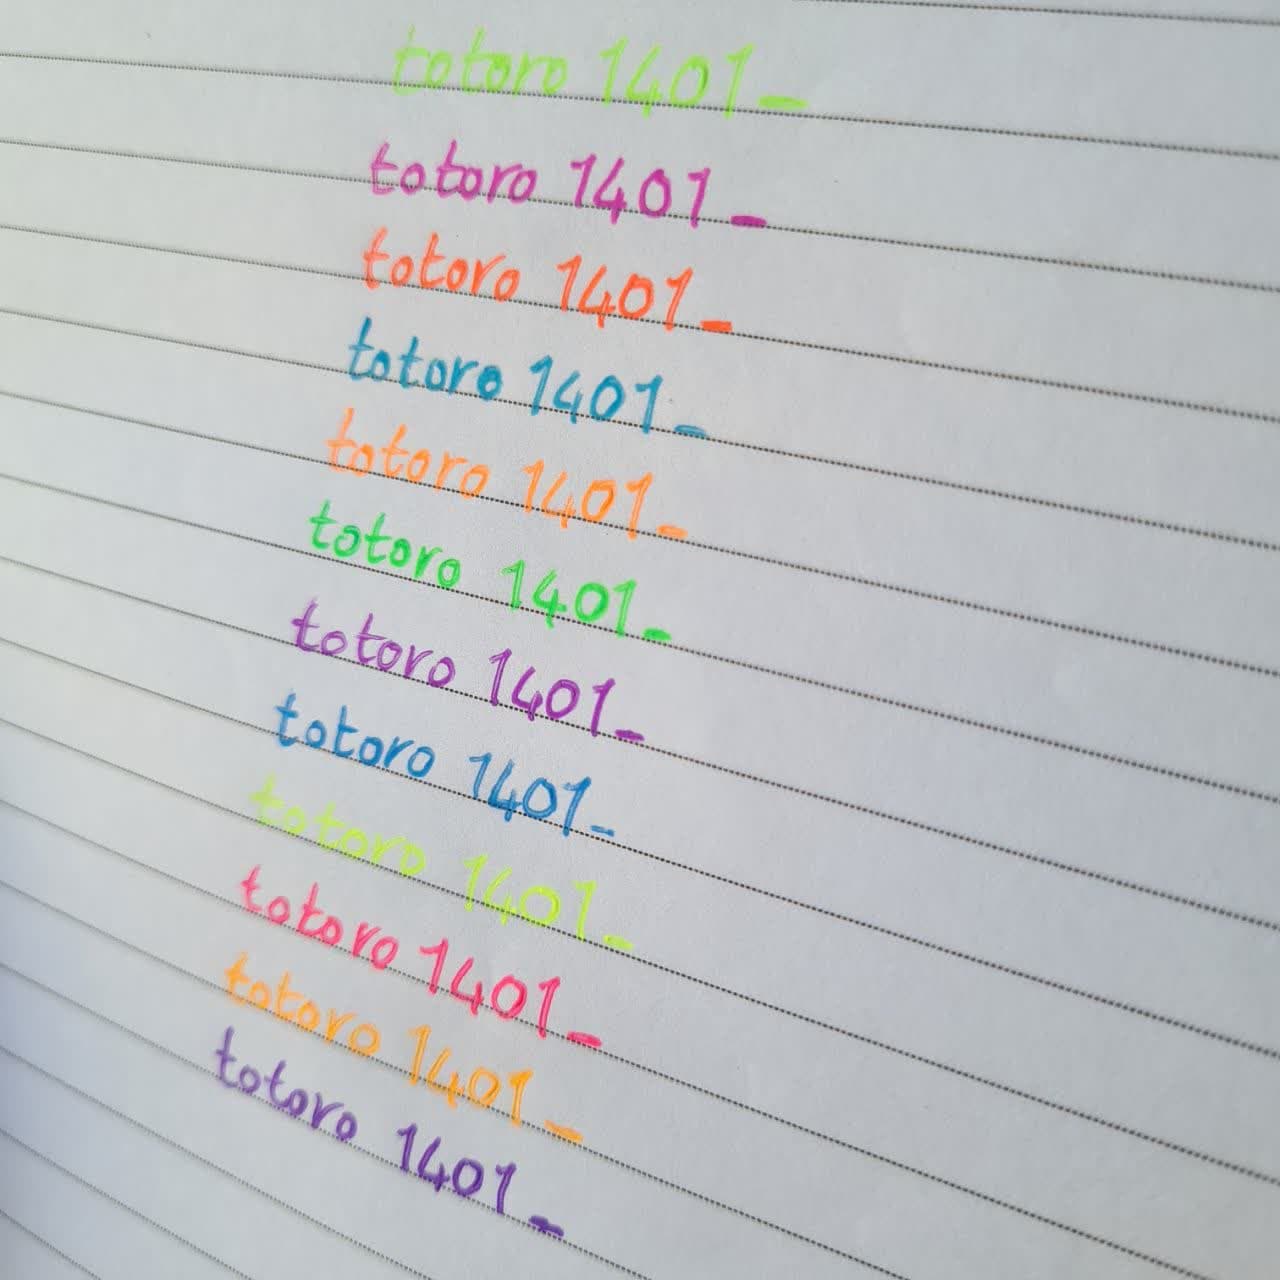 totoro 1401_
totoro 1401_
totoro 1401_
totoro 1401_
totoro 1401_
totoro 1401_
totoro 1401_
totoro 1401_
totoro 1401_
totoro 1401_
totoro 1401_
totoro 1401_